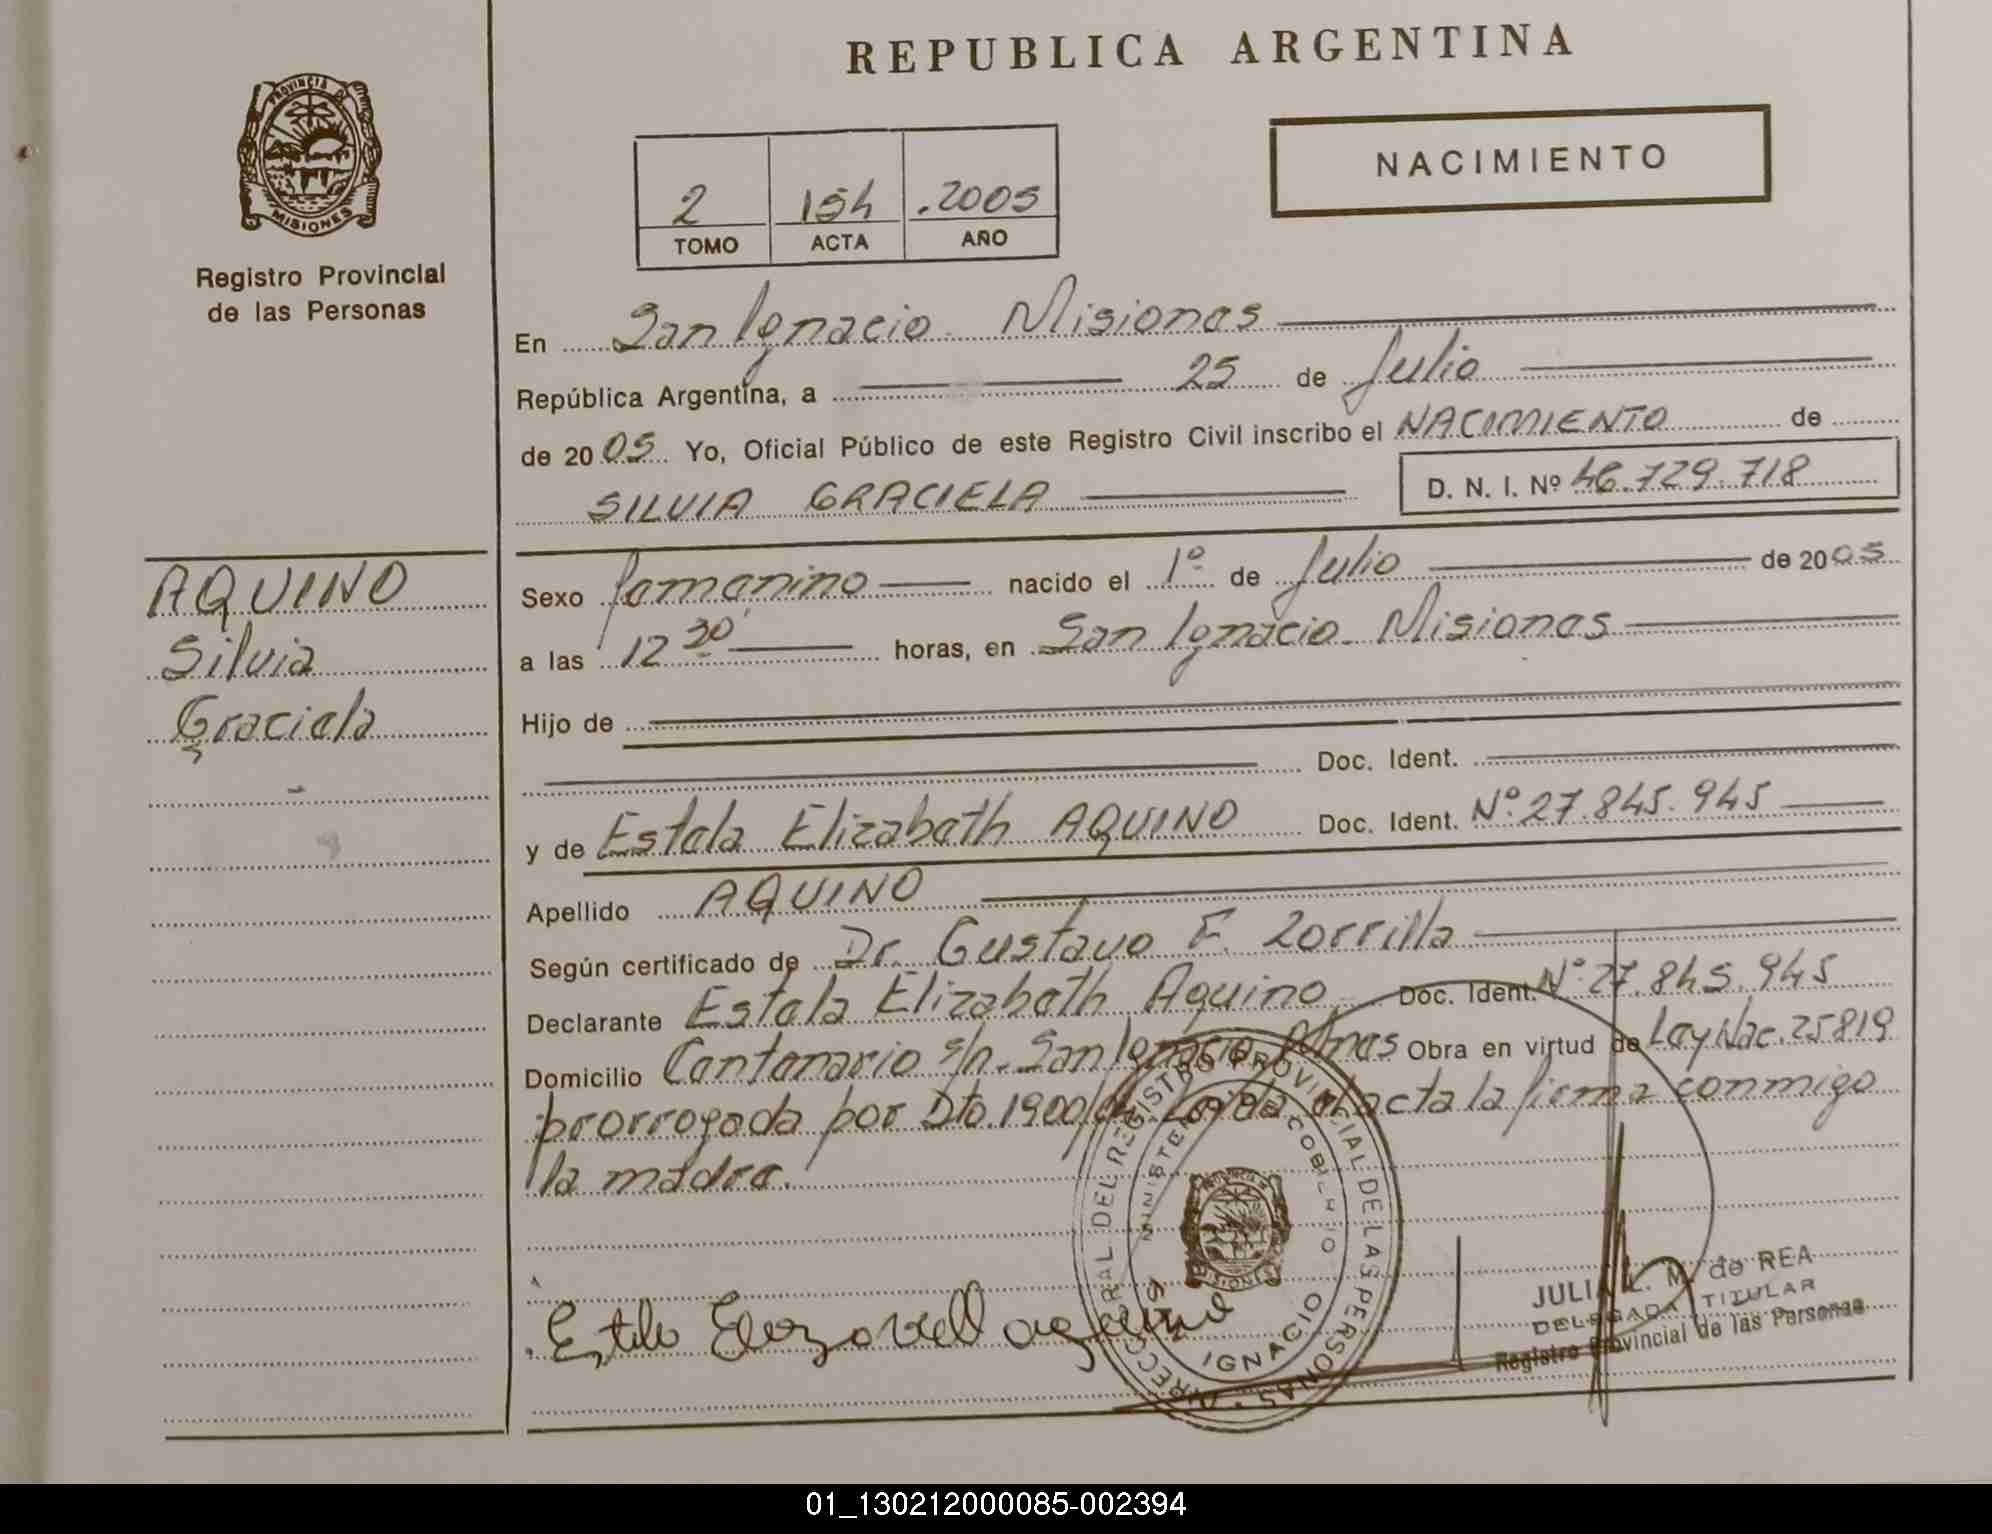 REPUBLICA ARGENTINA
PROVINCIA DE
MISIONES
Registro Provincial
de las Personas
NACIMIENTO
2 154 .2005
TOMO ACTA AÑO
En San Ignacio - Misiones
República Argentina, a 25 de Julio
de 2005 Yo, Oficial Público de este Registro Civil inscribo el NACIMIENTO de
SILVIA GRACIELA D. N. I. Nº 46.729.718
AQUINO
Silvia
Graciela
Sexo femenino nacido el 1º de Julio de 2005
a las 12 30' horas, en San Ignacio - Misiones
Hijo de
Doc. Ident.
y de Estela Elizabeth AQUINO Doc. Ident. Nº 27.845.945
Apellido AQUINO
Según certificado de Dr. Gustavo F. Zorrilla
Declarante Estela Elizabeth Aquino Doc. Ident. Nº 27.845.945
Domicilio Centenario s/n. San Ignacio Mnes Obra en virtud de Ley Nac. 25819
prorrogada por Dto. 1900/04 Leída el acta la firma conmigo
la madre.
DIRECC GRAL DEL REGISTRO PROVINCIAL DE LAS PERSONAS
MINISTER GOBIERNO
IGNACIO
MISIONES
JULIA L. M. de REA
DELEGADA TITULAR
Registro Provincial de las Personas
01_130212000085-002394